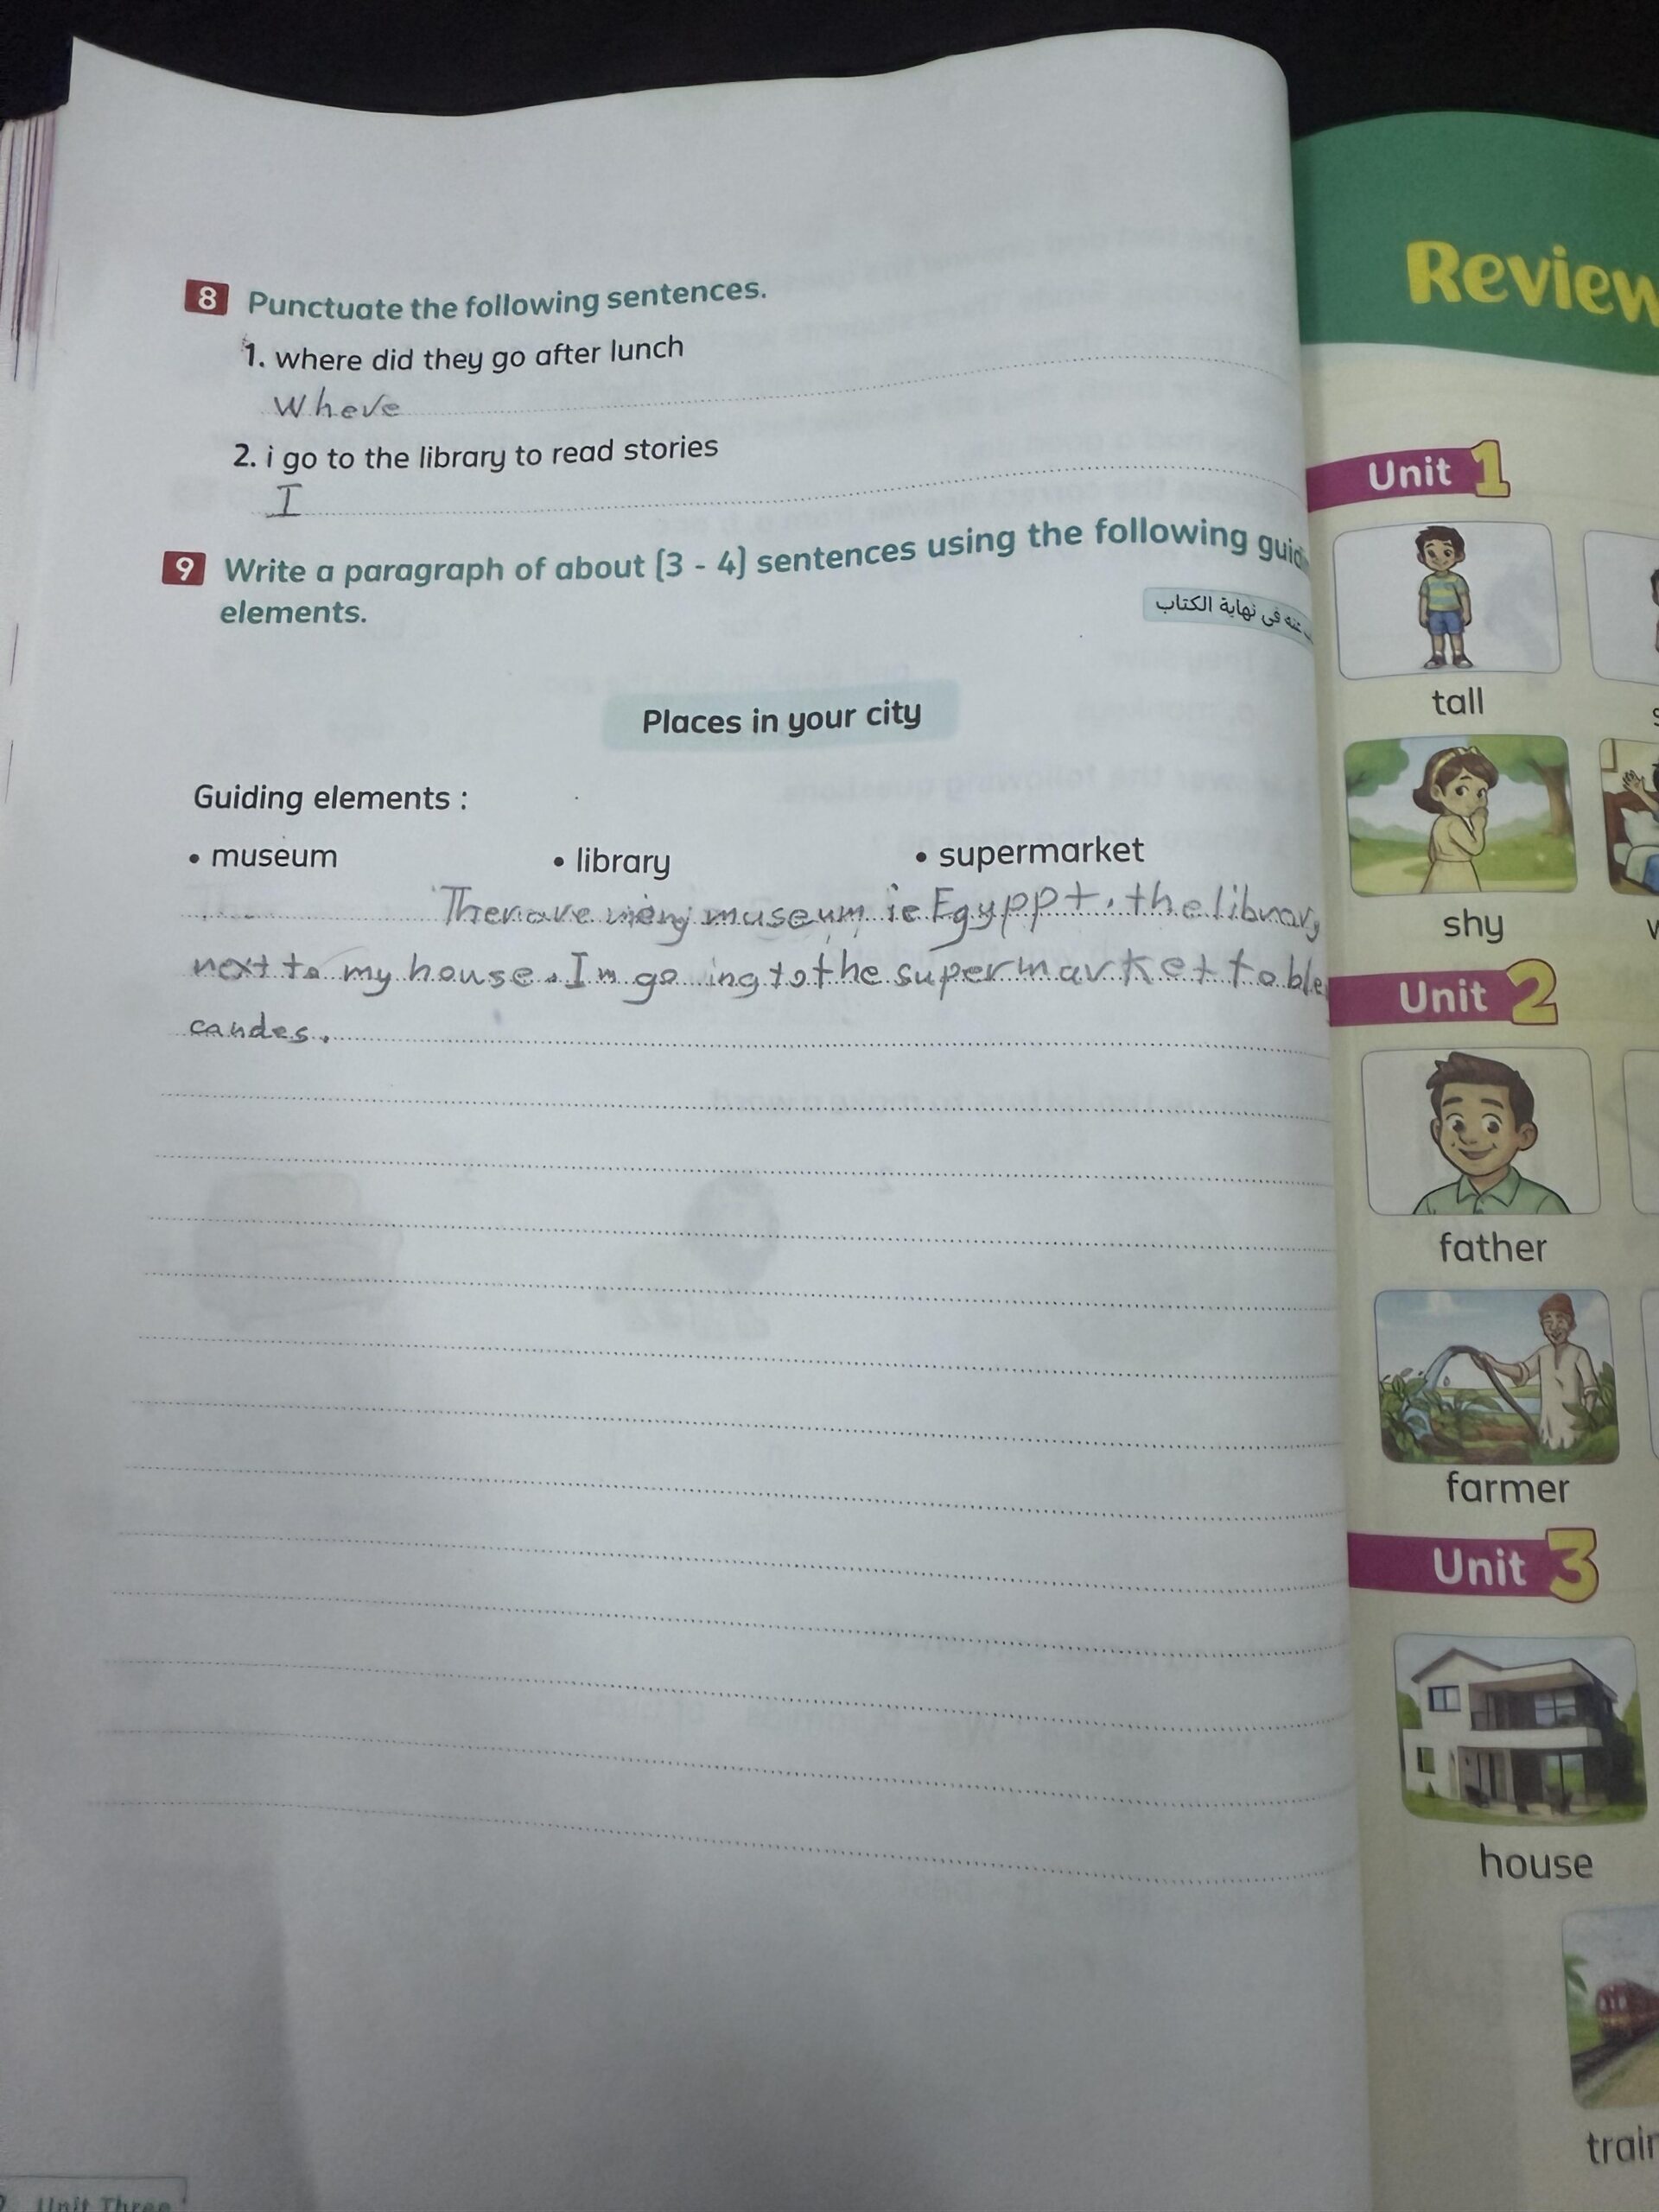 8 Punctuate the following sentences.
1. where did they go after lunch
Where
2. i go to the library to read stories
I
9 Write a paragraph of about (3 - 4) sentences using the following
elements.
عنه في نهاية الكتاب
Places in your city
Guiding elements :
• museum • library • supermarket
museum Egyppt. the library
next to my house. I'm go ing to the supermarket to
candes.
Review
Unit 1
tall
shy
Unit 2
father
farmer
Unit 3
house
train
Unit Three